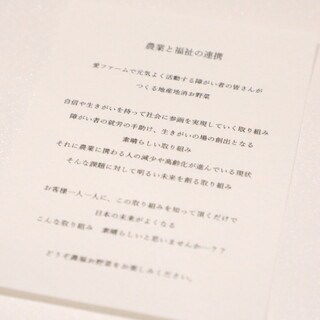 農業と福祉の連携
愛ファームで元気よく活動する障がい者の皆さんが
つくる地産地消お野菜
自信や生きがいを持って社会に参画を実現していく取り組み
障がい者の就労の手助け、生きがいの場の創出となる
素晴らしい取り組み
それに農業に携わる人の減少や高齢化が進んでいる現状
そんな課題に対して明るい未来を創る取り組み
お客様一人一人に、この取り組みを知って頂くだけで
日本の未来がよくなる
こんな取り組み 素晴らしいと思いませんか…??
どうぞ農福お野菜をお楽しみください。